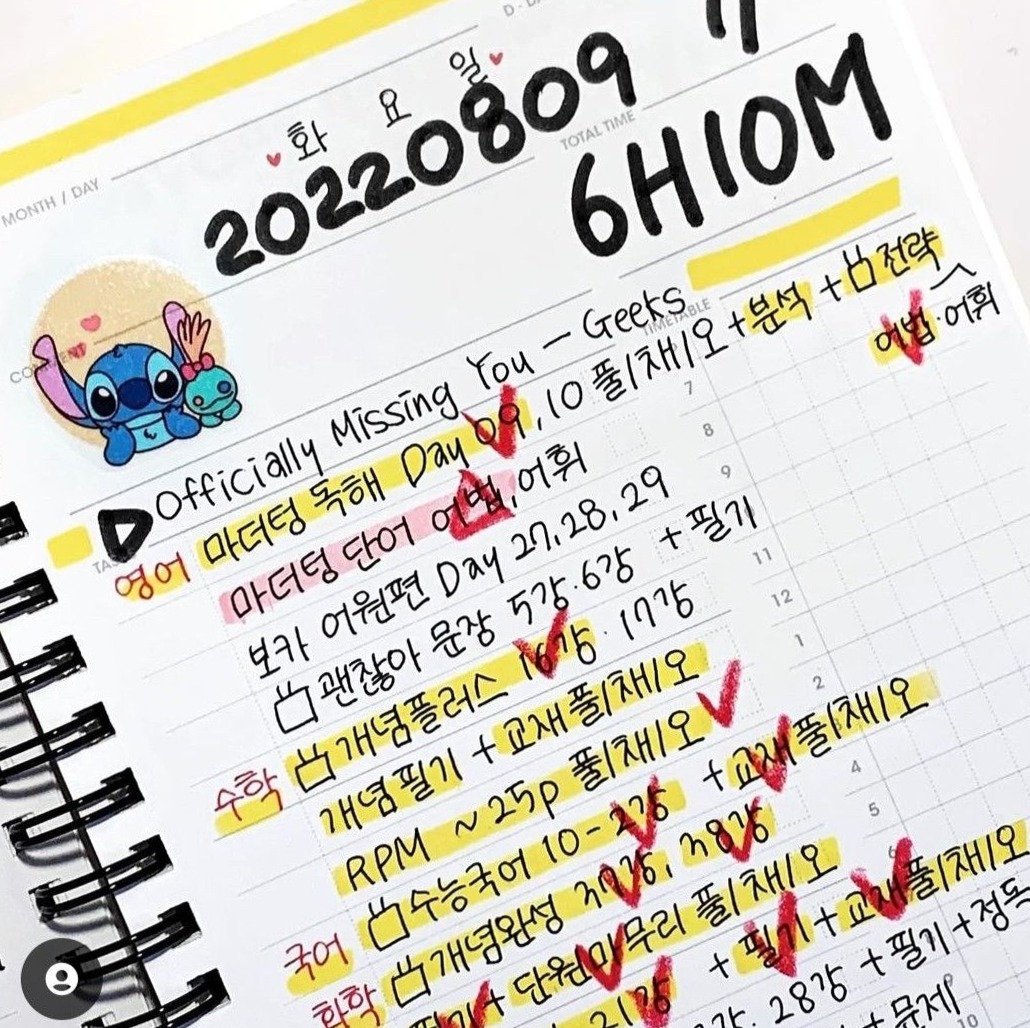 D-DAY
화요일
20220809
MONTH / DAY
TOTAL TIME
6H10M
TIMETABLE
Officially Missing You - Geeks
영어 마더텅 독해 Day 09, 10 풀/채/오 + 분석 + 凸전략
어법·어휘
마더텅 단어 어법, 어휘
보카 어원편 Day 27, 28, 29
凸괜찮아 문장 5강·6강 + 필기
수학 凸개념플러스 16강·17강
개념필기 + 교재풀/채/오
RPM ~25p 풀/채/오
국어 凸수능국어 10-2강 + 교재풀/채/오
화학 凸개념완성 38강
필기 + 단원마무리 풀/채/오
21강 + 필기 + 교재풀/채/오
28강 + 필기 + 정독
+ 문제
7
8
9
11
12
1
2
4
5
6
9
10